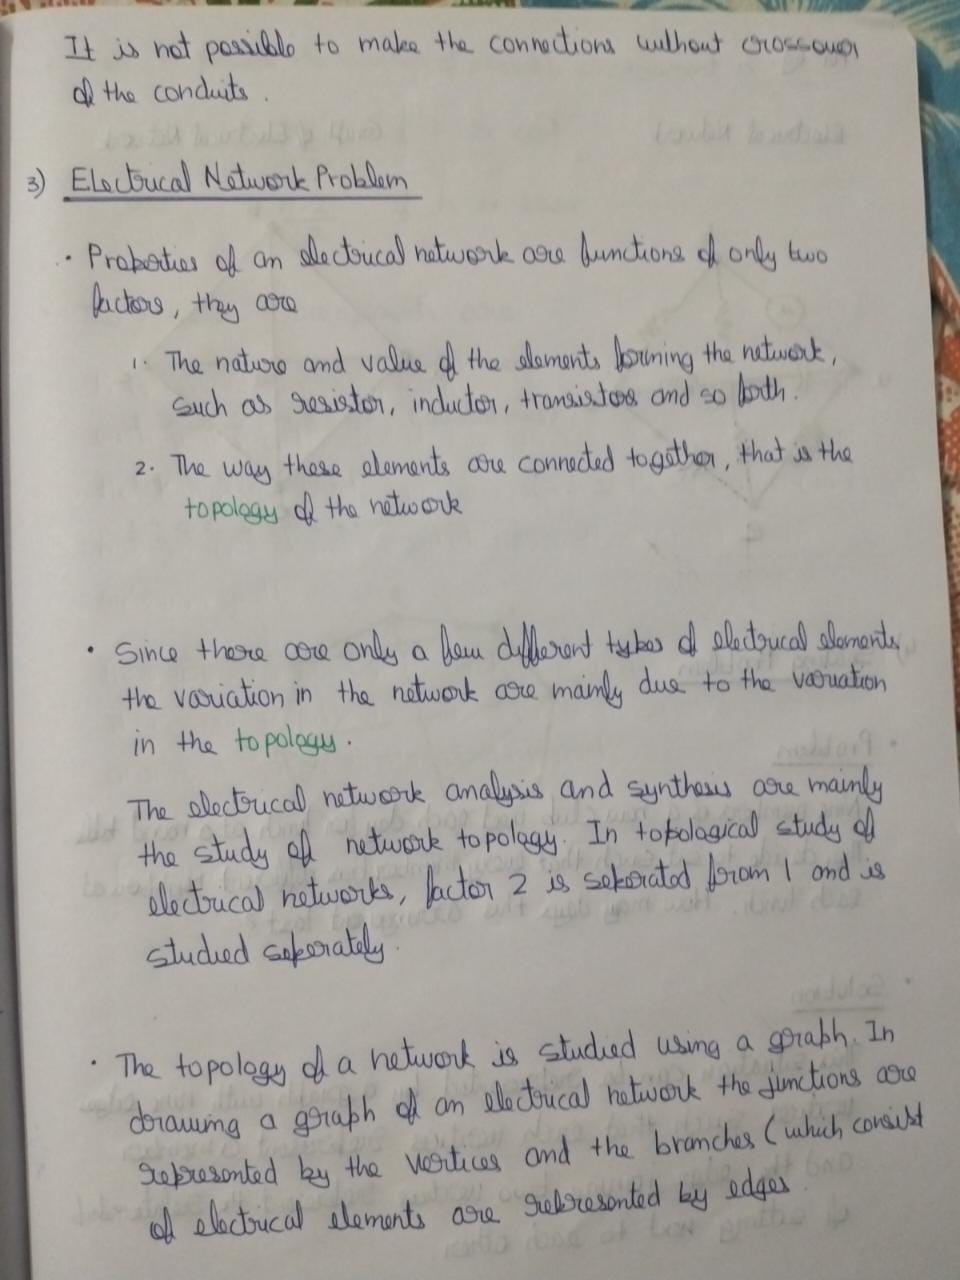 It is not possible to make the connections without crossover
of the conduits.
3) Electrical Network Problem
• Properties of an electrical network are functions of only two
factors, they are
1. The nature and value of the elements forming the network,
such as resistor, inductor, transistors and so forth.
2. The way these elements are connected together, that is the
topology of the network
• Since there are only a few different types of electrical elements,
the variation in the network are mainly due to the variation
in the topology.
The electrical network analysis and synthesis are mainly
the study of network topology. In topological study of
electrical networks, factor 2 is seperated from 1 and is
studied seperately.
• The topology of a network is studied using a graph. In
drawing a graph of an electrical network the junctions are
represented by the vertices and the branches (which consist
of electrical elements are represented by edges.